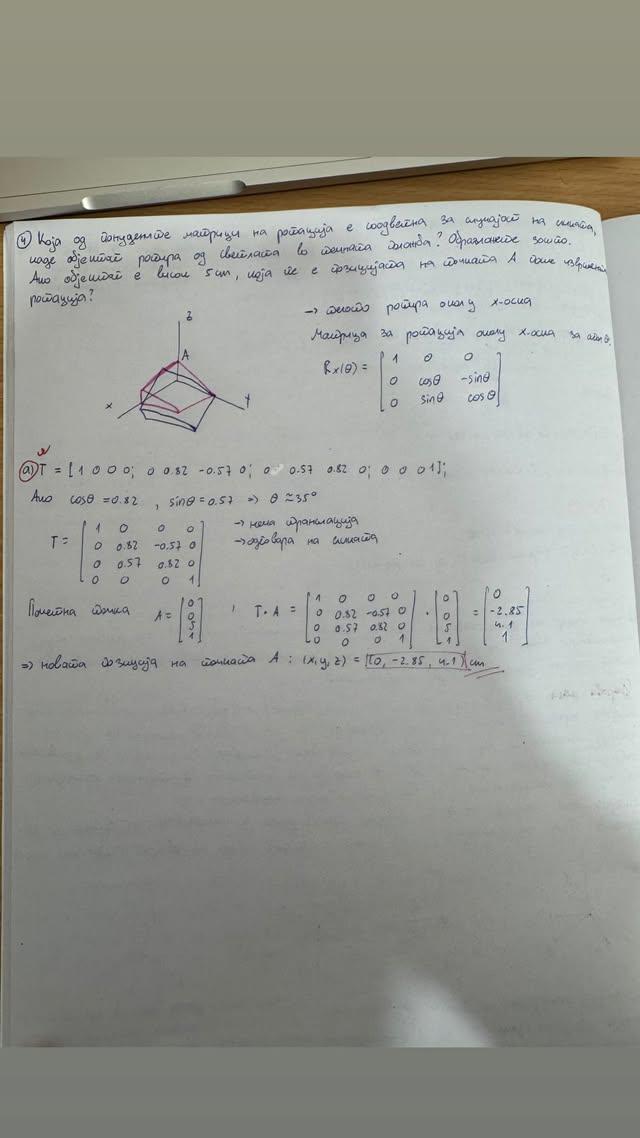 4) Која од понудените матрици на ротација е соодветна за случајот на сликата,
каде објектот ротира од светлата во темната позиција? Образложете зошто.
Ако објектот е висок 5 cm, која ќе е позицијата на точката A после извршената
ротација?
z
A
x
y
→ телото ротира околу x-оска
Матрица за ротација околу x-оска за агол θ.
Rx(θ) = [ 1 0 0
0 cosθ -sinθ
0 sinθ cosθ ]
a) T = [1 0 0 0; 0 0.82 -0.57 0; 0 0.57 0.82 0; 0 0 0 1];
Ако cosθ = 0.82 , sinθ = 0.57 ⇒ θ ≈ 35°
T = [ 1 0 0 0
0 0.82 -0.57 0
0 0.57 0.82 0
0 0 0 1 ]
→ нема транслација
→ одговара на сликата
Почетна точка A = [ 0 0 5 1 ] , T · A = [ 1 0 0 0
0 0.82 -0.57 0
0 0.57 0.82 0
0 0 0 1 ] · [ 0 0 5 1 ] = [ 0 -2.85 4.1 1 ]
⇒ новата позиција на точката A : (x, y, z) = (0, -2.85, 4.1) cm